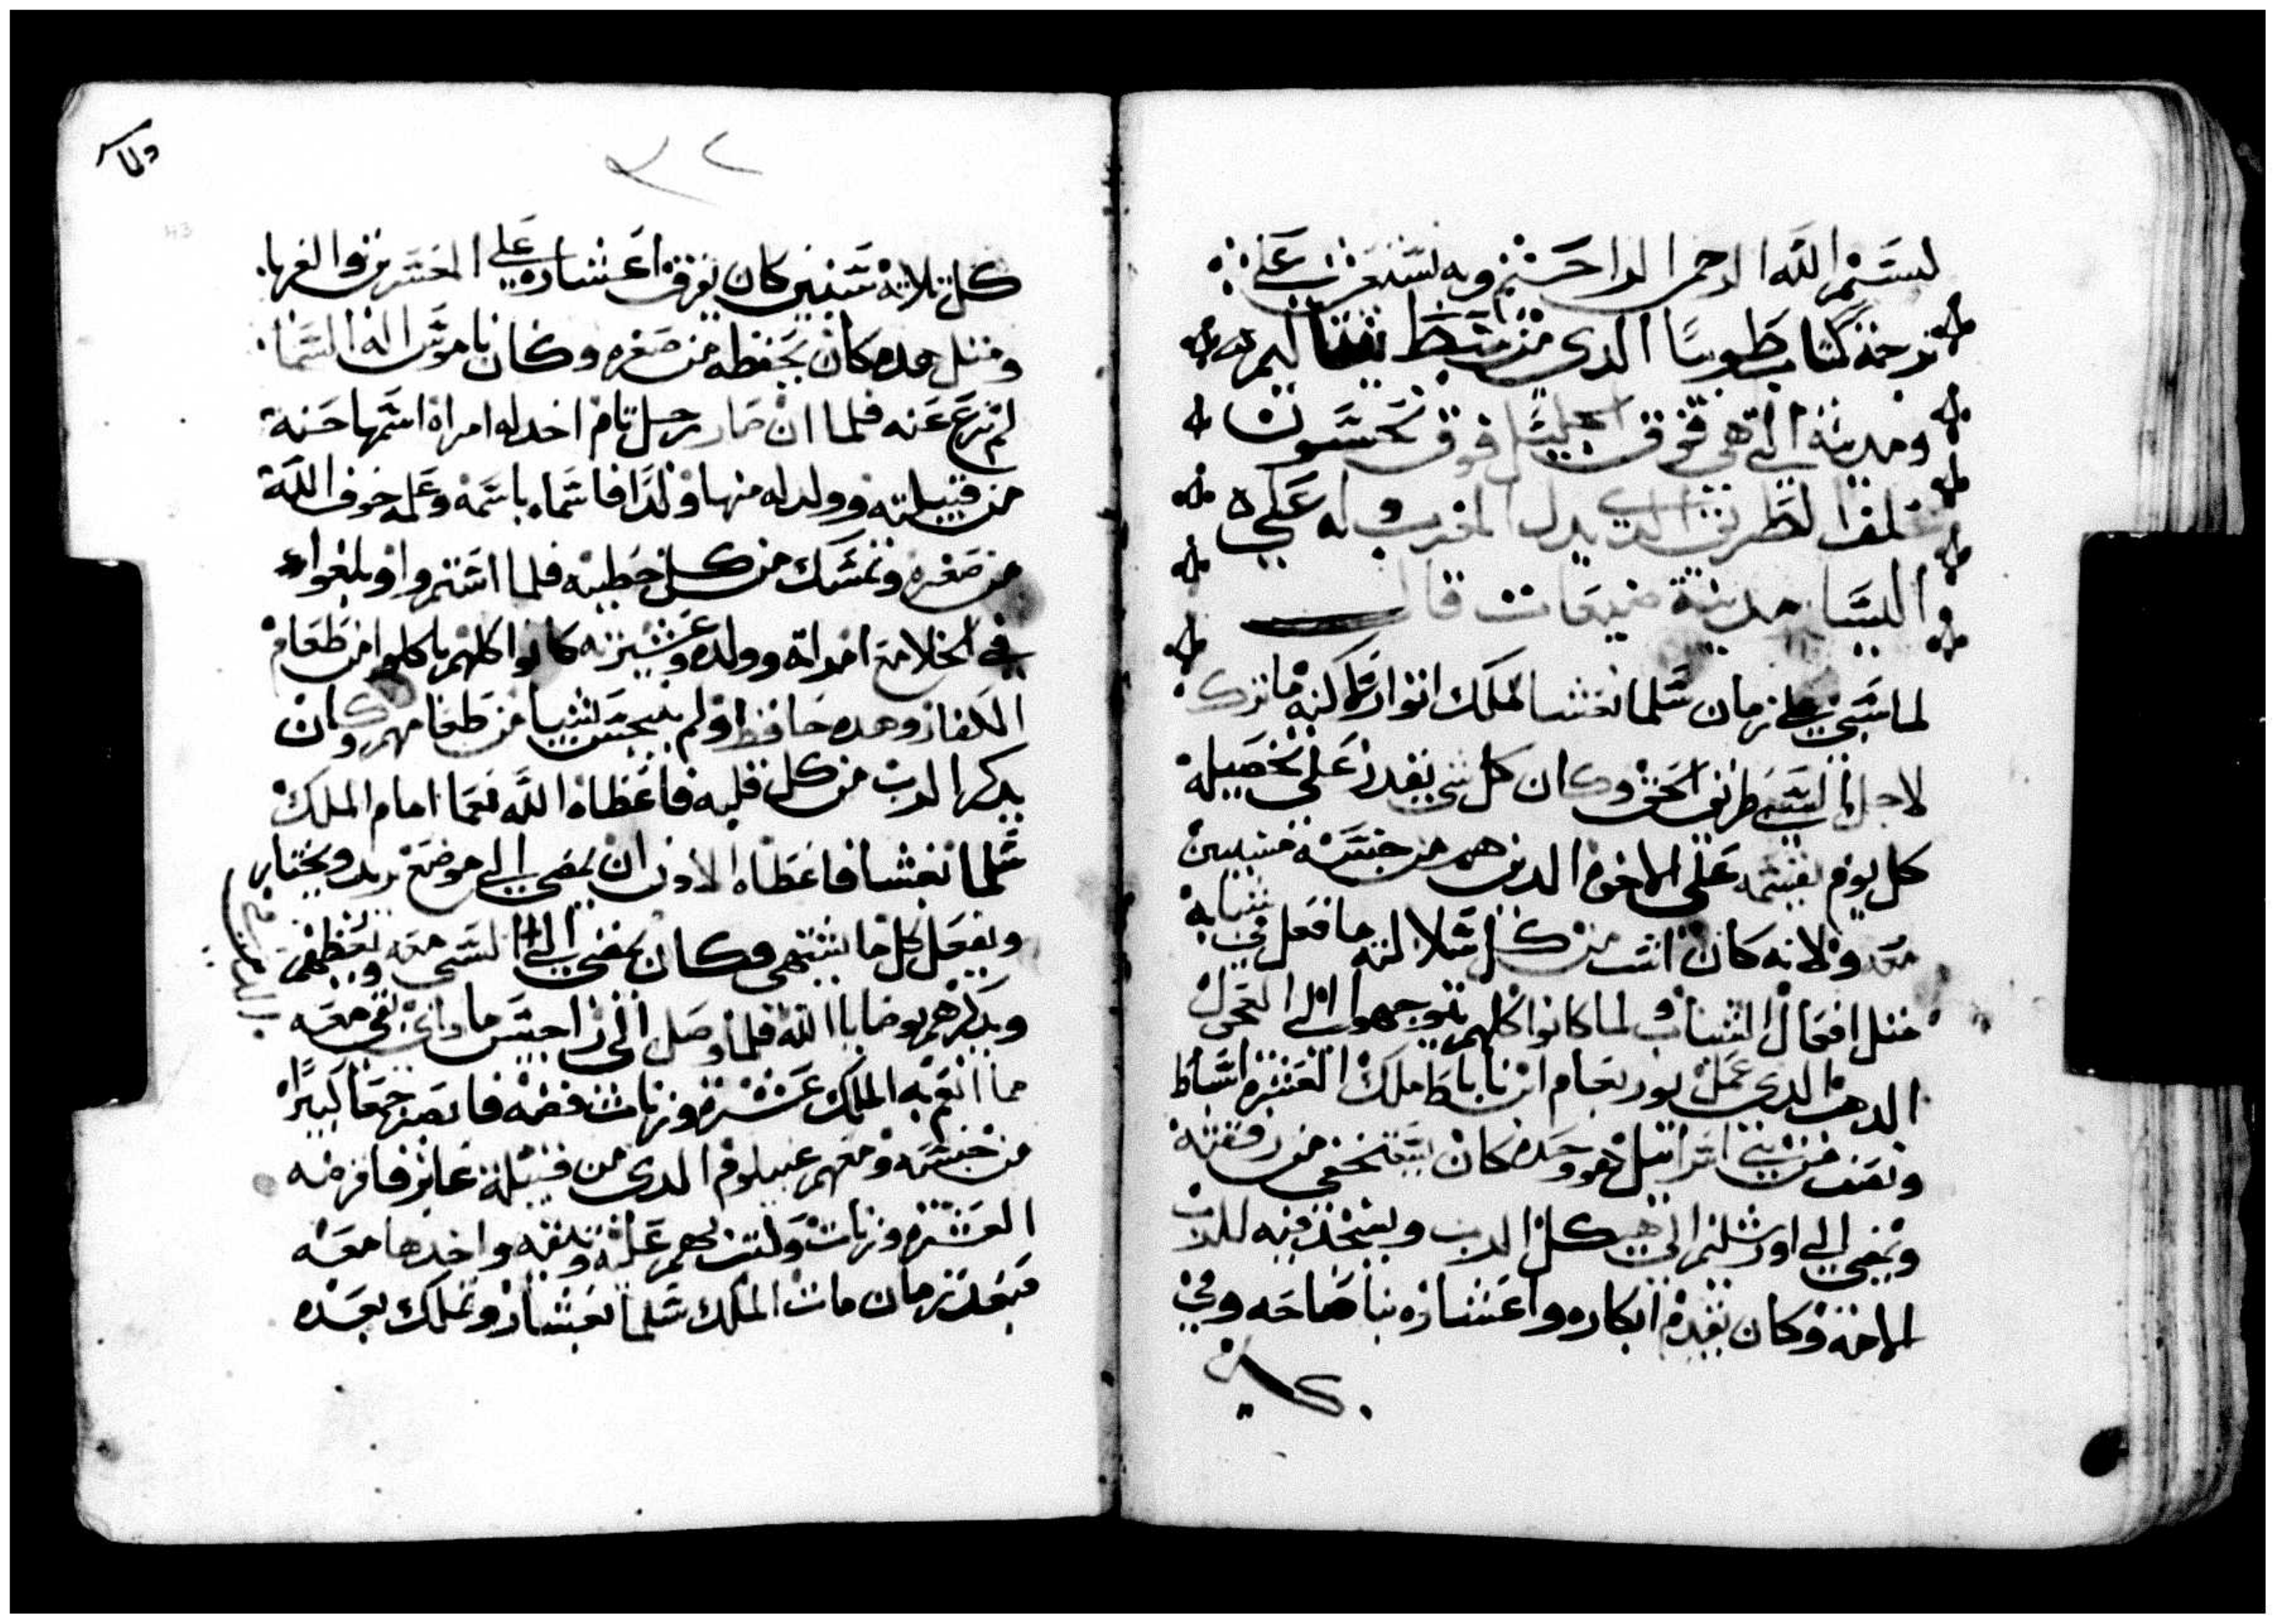 بسم الله الرحمن الراحيم وبه نستعين على
ترجمة كتاب طوبيا الدي من سبط نفتاليم
ومدينة التي هي فوق الجليل فوق نحسون
خلف الطريق الدي يدل المغرب وله على
اليسار مدينة ضيعات قال
لما سبي على زمان شلمانعشا لملك اتوار لكنه ما ترك
لاجل السبي طريق الحق وكان كل شي يقدر على تحصيله
كل يوم يقسمه على الاخوة الدين هم من جنسه مسبيين
معه ولانه كان اشب من كل ما فعل في شبابه
مثل افعال الشباب ولما كانوا كلهم يتوجهوا الى العجل
الدهب الدي عمل يوربعام ابن ناباط ملك العشرة اسباط
ونصف من بني اسرائيل هو وحده كان يستخفي من رفقته
ويمضي الى اورشليم الى هيكل الرب ويسجد فيه للرب
الاهه وكان يقدم ابكاره واعشاره بنا صاحه وفي
كل
٣٢
كل تلاتة سنين كان يفرق اعشاره على المعسرين والغربا
ومثل هده كان يحفظه من صغره وكان ناموس اله السما
لم نزع عنه فلما ان صار رجل تام اخد له امراة اسمها حنة
من قبيلته وولد له منها ولدا فاسماه باسمه وعلمه خوف الله
من صغره وتمسك من كل خطية فلما اشتروا وبلغوا
في الخلا مع امراته وولده وعشيرته كانوا كلهم ياكلوا من طعام
الكفار وهده حافظ ولم ينجس شيا من طعامهم وكان
يدكر الرب من كل قلبه فاعطاه الله نعما امام الملك
شلمانعشا فاعطاه الادن ان يمضي الى موضع يريد ويختار
ويفعل كل ما يشتهي وكان يمضي الى السبي معه ويعظهم
ويدكرهم بوصايا الله فلما وصل الى راجيس مادي بقي معه
مما انعم به الملك عشرة وزنات فضه فابصر جمعا كبيرا
من جنسه ومعهم غبيلوم الدي من قبيلة عابر فاقرضه
العشرة وزنات وكتب بهم عليه وثيقه واخدها معه
فبعد زمان مات الملك شلمانعشار وتملك بعده